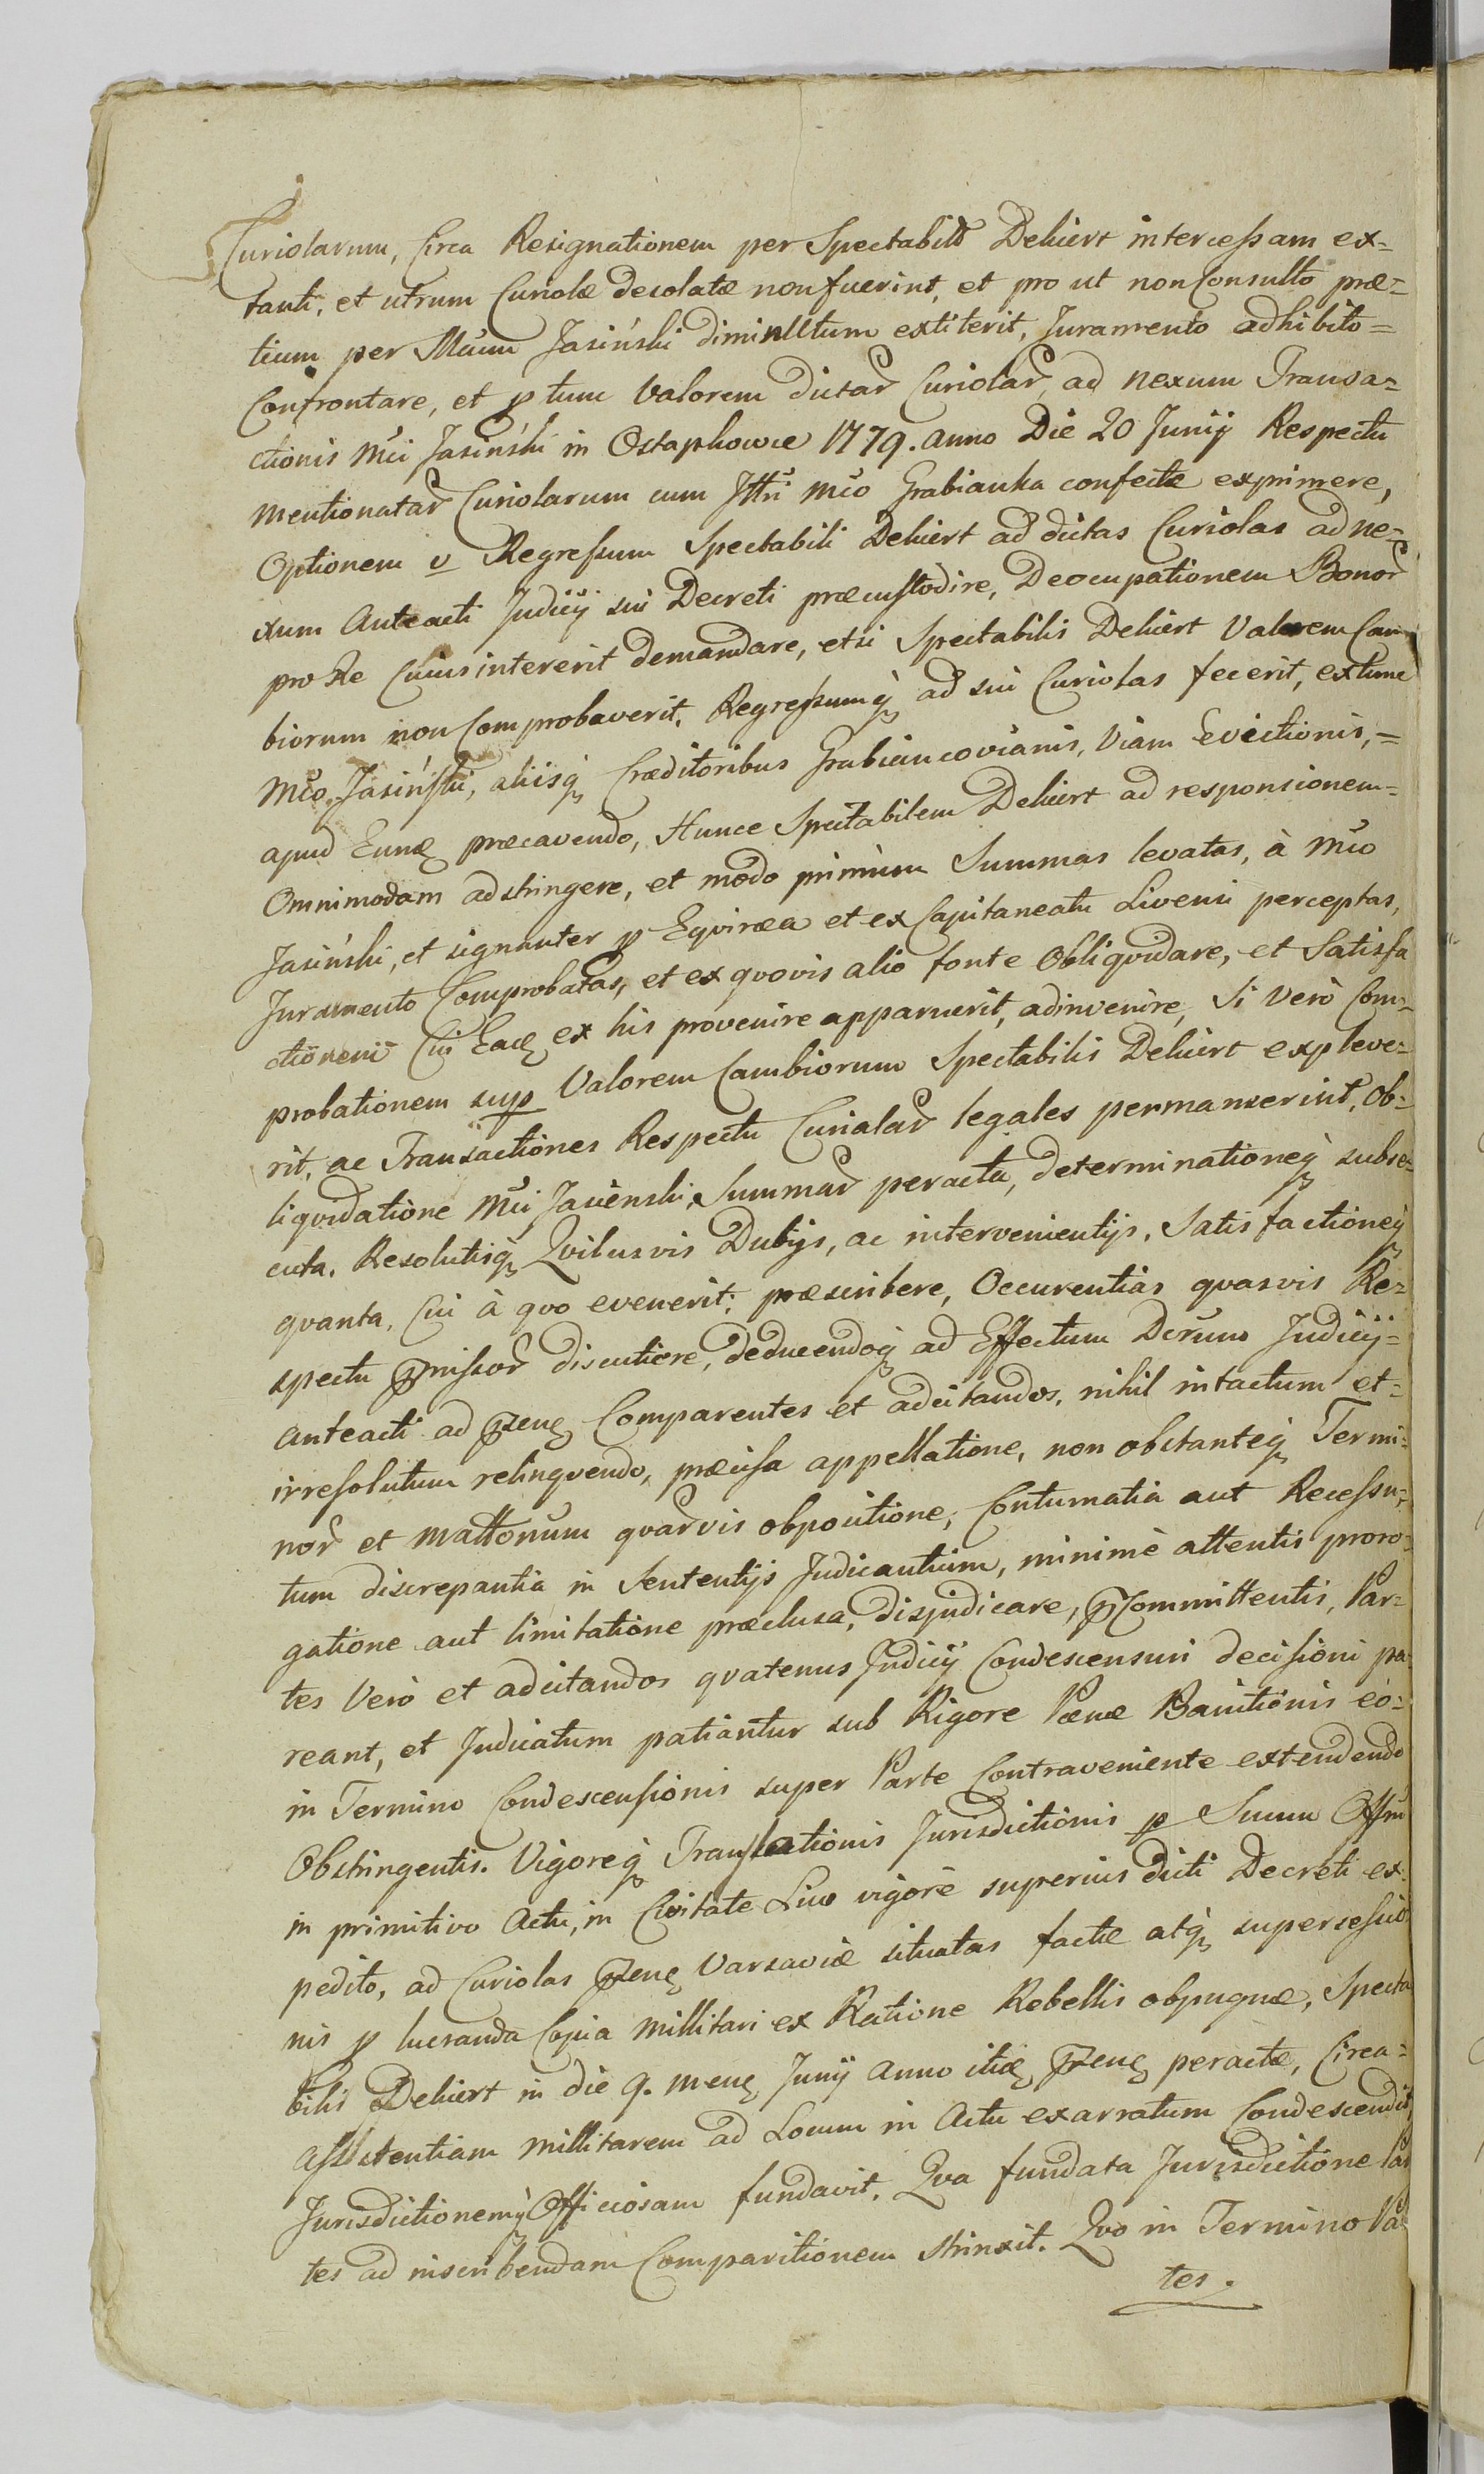 Curiolarum, Circa Resignationem per Spectabilē Dekiert intercessam ex-
tanti, et utrum Curiolæ desolatæ non fuerint, et pro ut non Consulto præ-
tium per Mcum Jasiński diminutum extiterit, Juramento adhibito=
Confrontare, et p tunc Valorem dictar Curiolar, ad nexum Transa-
ctionis Mci Jasiński in Ostaphowce 1779. anno Die 20 Junij Respectu
mentionatar Curiolarum cum Jttri Mco Grabianka confectæ exprimere,
Optionem v Regressum Spectabili Dekiert ad dictas Curiolas ad ne-
xum Anteacti Judicij sui Decreti præcustodire, Deocupationem Bonor
pro Re Cuius intererit demandare, et si Spectabilis Dekiert Valorem Cam
biorum non Comprobaverit, Regressumq ad sui Curiolas fecerit, extunc
Mco Jasiński, aliisq Creditoribus Grabiancovianis, Viam Evictionis,=
apud Eunq præcavendo, Hunce Spectabilem Dekiert ad responsionem=
Omnimodam adstringere, et modo primum Summas levatas, à Mco
Jasiński, et signanter p Eqvinea et ex Capitaneatu Livensi perceptas,
Juramento Comprobatas, et ex qvovis alio fonte Obliqvidare, et Satisfa
ctionem Cui Eaq ex his provenire apparuerit, adinvenire, Si Verò Com-
probationem sup Valorem Cambiorum Spectabilis Dekiert expleve-
rit, ac Transactiones Respectu Curialar legales permanserint, Ob-
liqvidatione Mci Jasienski, Summar peracta, determinationeq subse-
cuta, Resolutisq Qvibusvis Dubijs, ac intervenientijs, Satisfactioneq
qvanta, Cui à qvo evenerit, præscribere, Occurentias qvasvis Re-
spectu pmissor discutiere, deducendoq ad Effectum Dcrum Judicij-
anteacti ad pzenq Comparentes et adcitandos, nihil intactum et-
irresolutum relinqvendo, præcisa appellatione, non obstanteq Termi-
nor et Mattonum qvarvis obpositione, Contumatia aut Recessu,
tum discrepantia in Sententijs Judicantium, minimè attentis proro-
gatione aut limitatione præclusa, disjudicare, p Committentis, Par-
tes Verò et adcitandos qvatenus Judicij Condescensuri decisioni pa
reant, et Judicatum patiantur sub Rigore Pænæ Banitionis eò-
in Termino Condescensionis super Parte Contraveniente extendendo
Obstringentis. Vigoreq Translationis Jurisdictionis p Suum Offm
in primitivo Actu, in Civitate Liw vigore superius dicti Decreti ex-
pedito, ad Curiolas pzenq Varsaviæ situatas factæ atq supersessio
nis p lucranda Copia Millitari ex Ratione Rebellis obpugnæ, Specta
bilis Dekiert in die 9. Menq Junij Anno itiq pzenq peractæ, Circa-
assistentiam Millitarem ad Locum in Actu exarratum Condescendit,
Jurisdictionemq Officiosam fundavit. Qva fundata Jurisdictione Par
tes ad inscribendam Comparitionem strinxit. Qvo in Termino Par
tes.